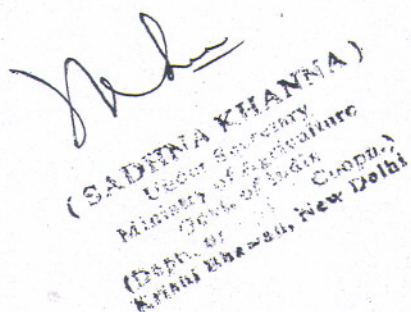 (SADHNA KHANNA)
Under Secretary
Ministry of Agriculture
Govt. of India
(Deptt. of Coopn.)
Krishi Bhawan, New Delhi